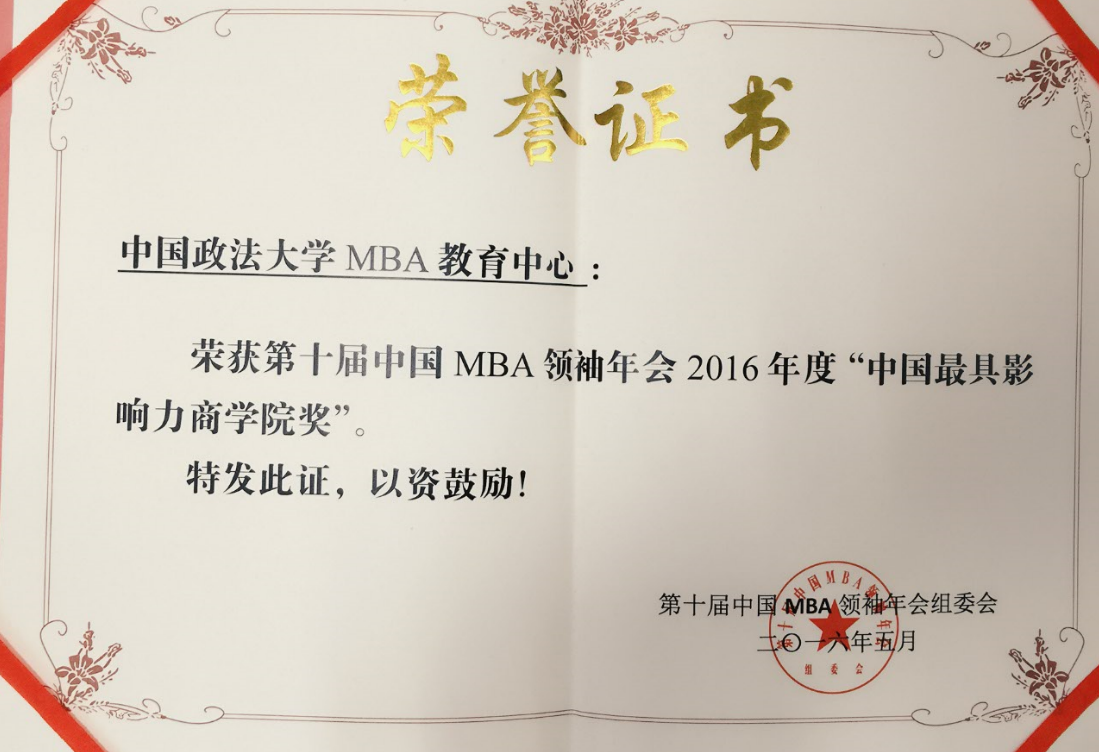 荣誉证书
中国政法大学 MBA 教育中心：
荣获第十届中国 MBA 领袖年会 2016 年度“中国最具影
响力商学院奖”。
特发此证，以资鼓励！
第十届中国 MBA 领袖年会组委会
二〇一六年五月
第十届中国MBA领袖年会
组委会